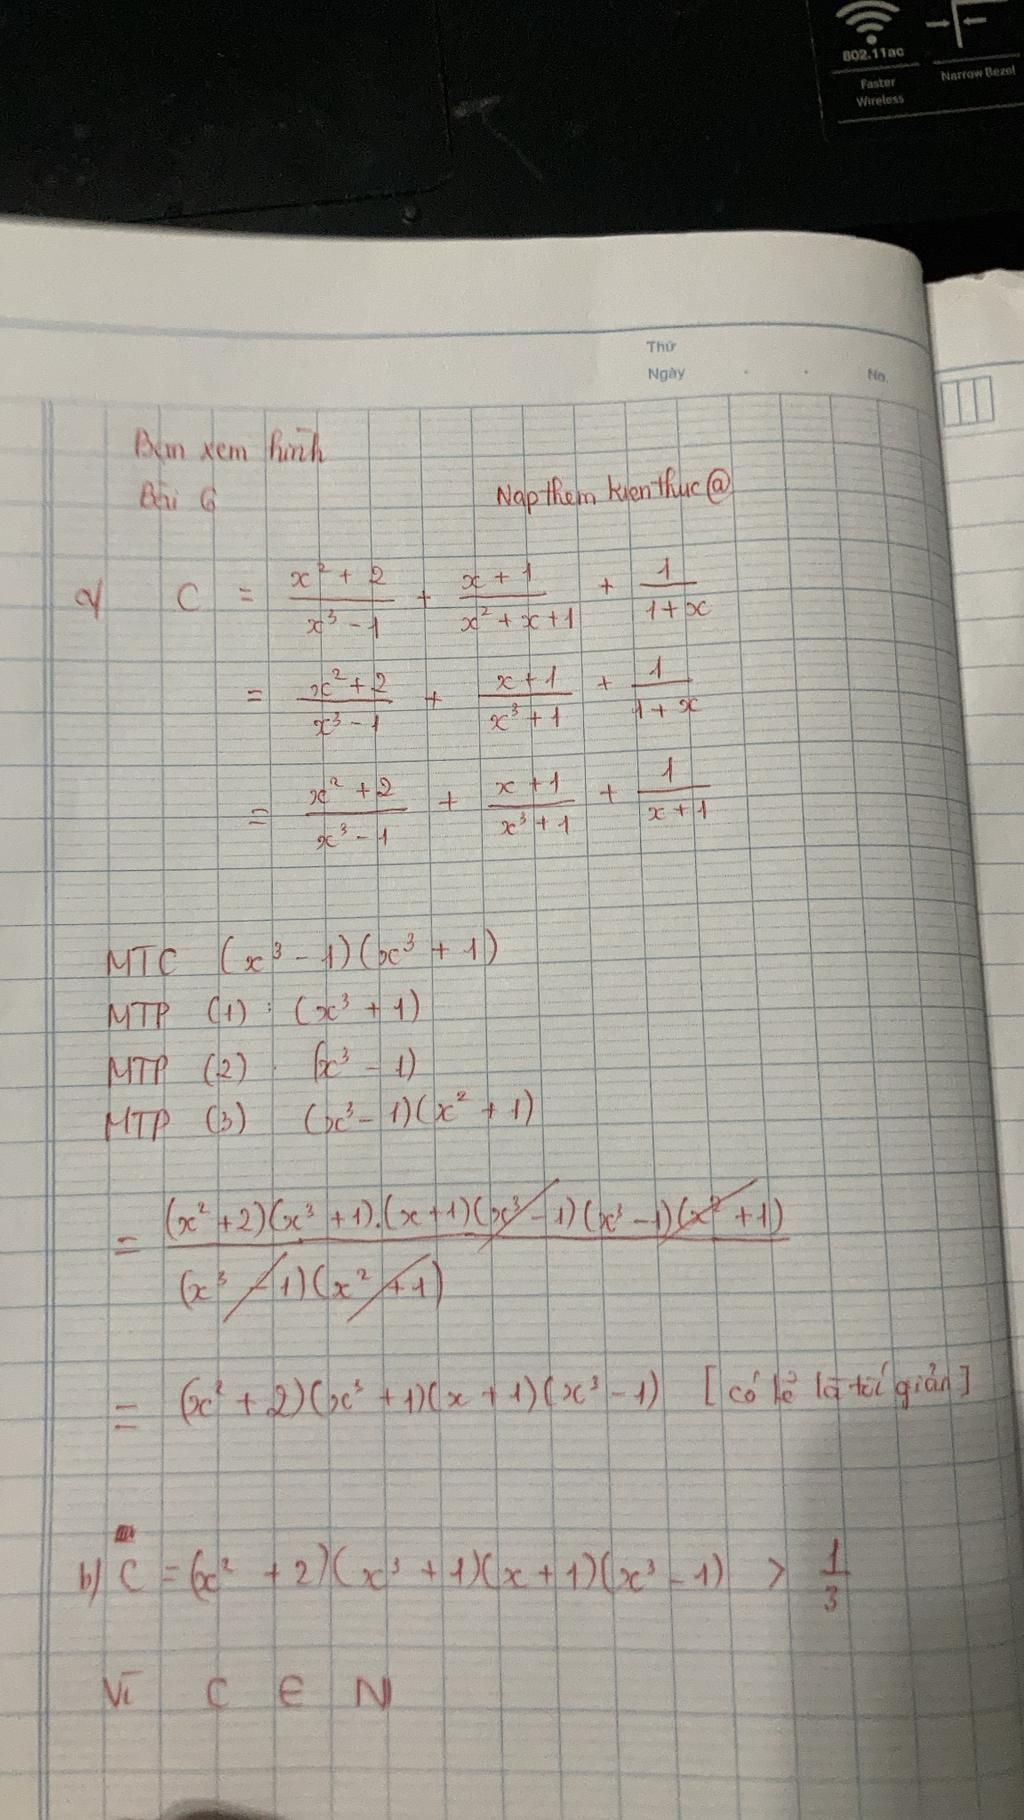 802.11ac
Faster
Wireless
Narrow Bezel
Thứ
Ngày . . No.
Bạn xem hình
Bài 6
Nạp thêm kiến thức @
a/ C = (x² + 2)/(x³ - 1) + (x + 1)/(x² + x + 1) + 1/(1 + x)
= (x² + 2)/(x³ - 1) + (x + 1)/(x³ + 1) + 1/(1 + x)
= (x² + 2)/(x³ - 1) + (x + 1)/(x³ + 1) + 1/(x + 1)
MTC (x³ - 1)(x³ + 1)
MTP (1) : (x³ + 1)
MTP (2) . (x³ - 1)
MTP (3) (x³ - 1)(x² + 1)
= (x² + 2)(x³ + 1).(x + 1)(x³ - 1)(x³ - 1)(x² + 1)
(x³ - 1)(x² + 1)
= (x² + 2)(x³ + 1)(x + 1)(x³ - 1) [có lẽ là tối giản]
b/ C = (x² + 2)(x³ + 1)(x + 1)(x³ - 1) > 1/3
Vì C ∈ N